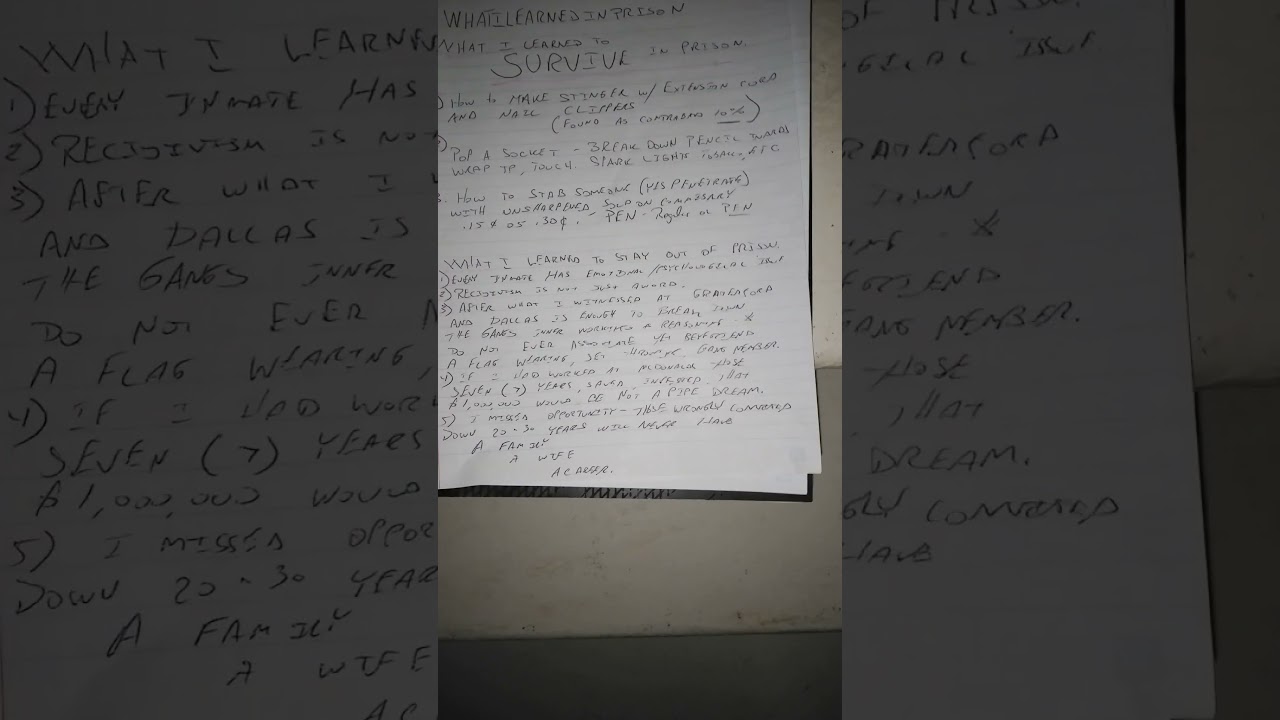 WHATILEARNEDINPRISON
WHAT I LEARNED TO
SURVIVE IN PRISON.
HOW TO MAKE STINGER W/ EXTENSION CORD
AND NAIL CLIPPERS
(FOUND AS CONTRABAND
POP A SOCKET - BREAK DOWN PENCIL
WRAP TP, TOUCH. SPARK LIGHTS ETC
3. HOW TO STAB SOMEONE (YES PENETRATE)
WITH UNSHARPENED SOLD ON COMMISSARY
.15¢ OS .30¢. - PEN - Regular or PEN
WHAT I LEARNED TO STAY OUT OF PRISON.
1) EVERY INMATE HAS EMOTIONAL/PSYCHOLOGICAL ISSUE
2) RECIDIVISM IS NOT JUST A WORD.
3) AFTER WHAT I WITNESSED AT GRATERFORD
AND DALLAS IS ENOUGH TO BREAK DOWN
THE GANGS INNER WORKINGS & REASONING *
DO NOT EVER ASSOCIATE YET BEFRIEND
A FLAG WEARING, SET GANG MEMBER.
4) IF I HAD WORKED AT MCDONALDS THOSE
SEVEN (7) YEARS, SAVED, INVESTED, THAT
$1,000,000 WOULD BE NOT A PIPE DREAM.
5) I MISSED OPPORTUNITY - THOSE WRONGLY CONVICTED
DOWN 20-30 YEARS WILL NEVER HAVE
A FAMILY
A WIFE
A CAREER.